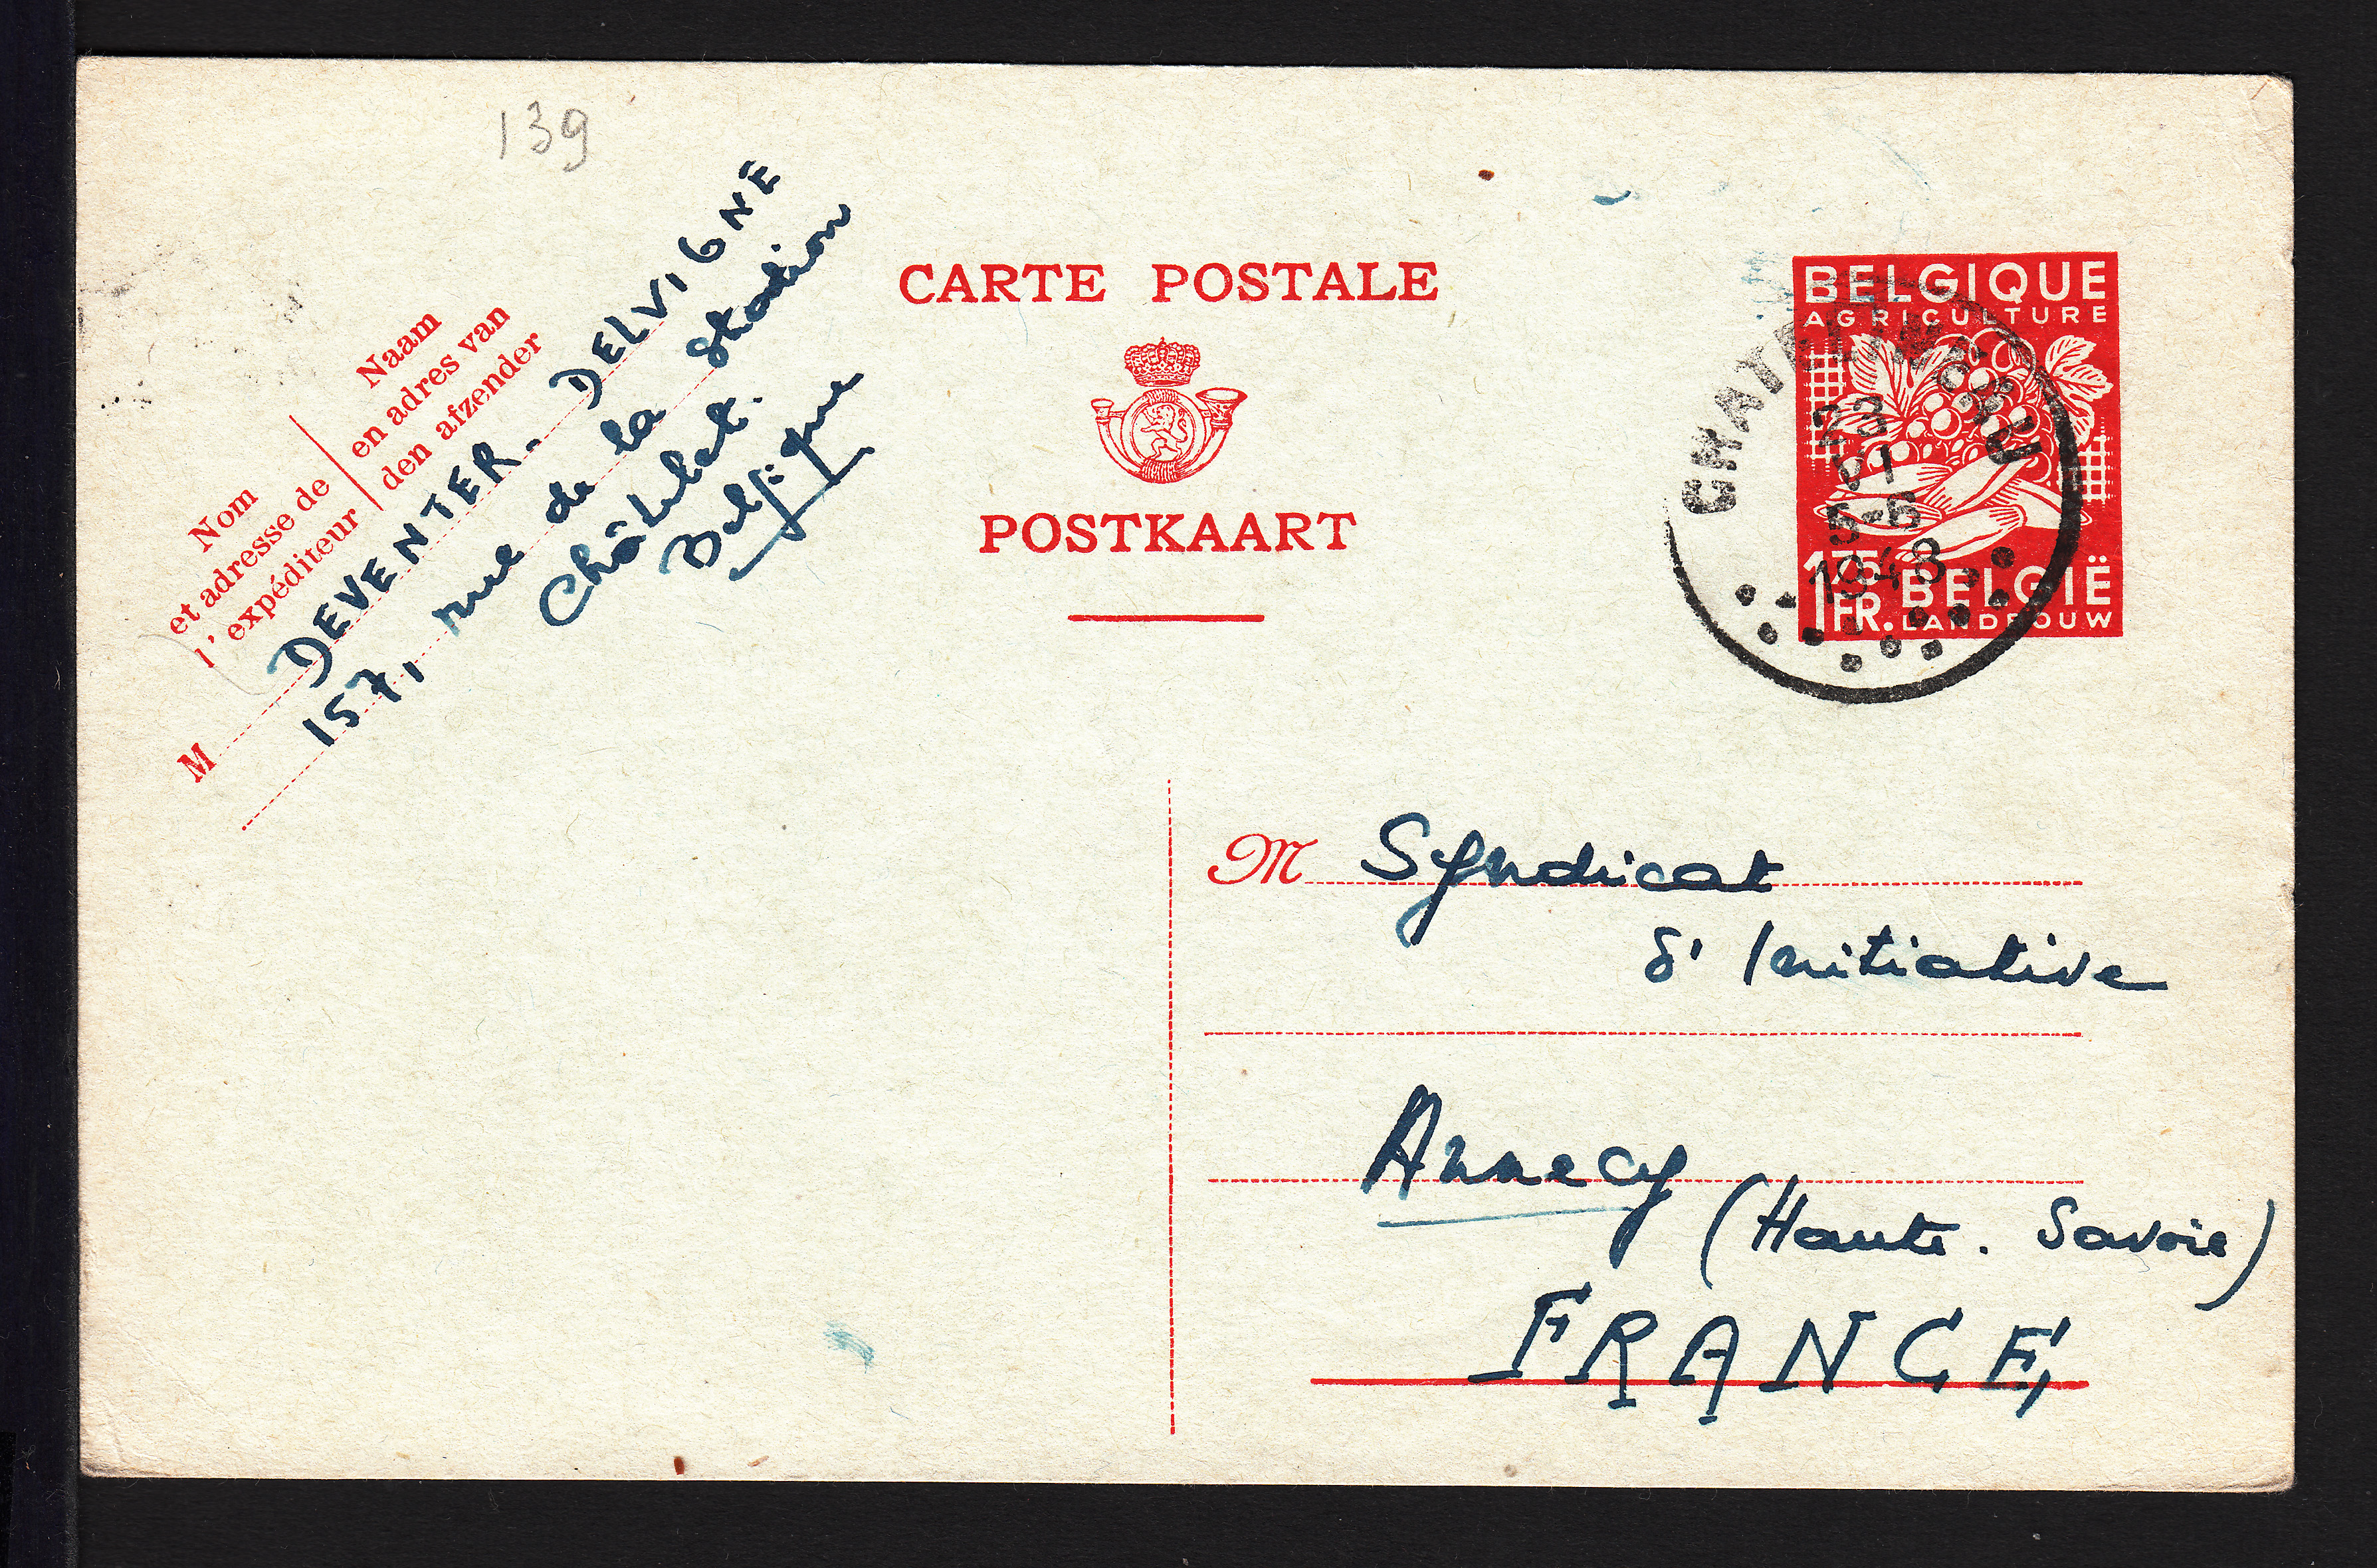 139
Naam
en adres van
den afzender
Nom
et adresse de
l'expéditeur
M DEVENTER. DELVIGNE
157, rue de la Station
Châtelet.
Belgique
CARTE POSTALE
POSTKAART
BELGIQUE
AGRICULTURE
1 75 FR. BELGIË
LANDBOUW
CHATELINEAU
23
5-6
1948
M Syndicat
d'Initiative
Annecy
(Haute. Savoie)
FRANCE